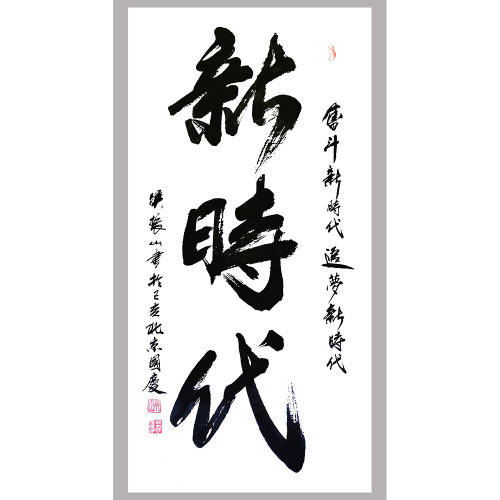 奮斗新時代 追夢新時代
新時代
張山書於己亥北京國慶